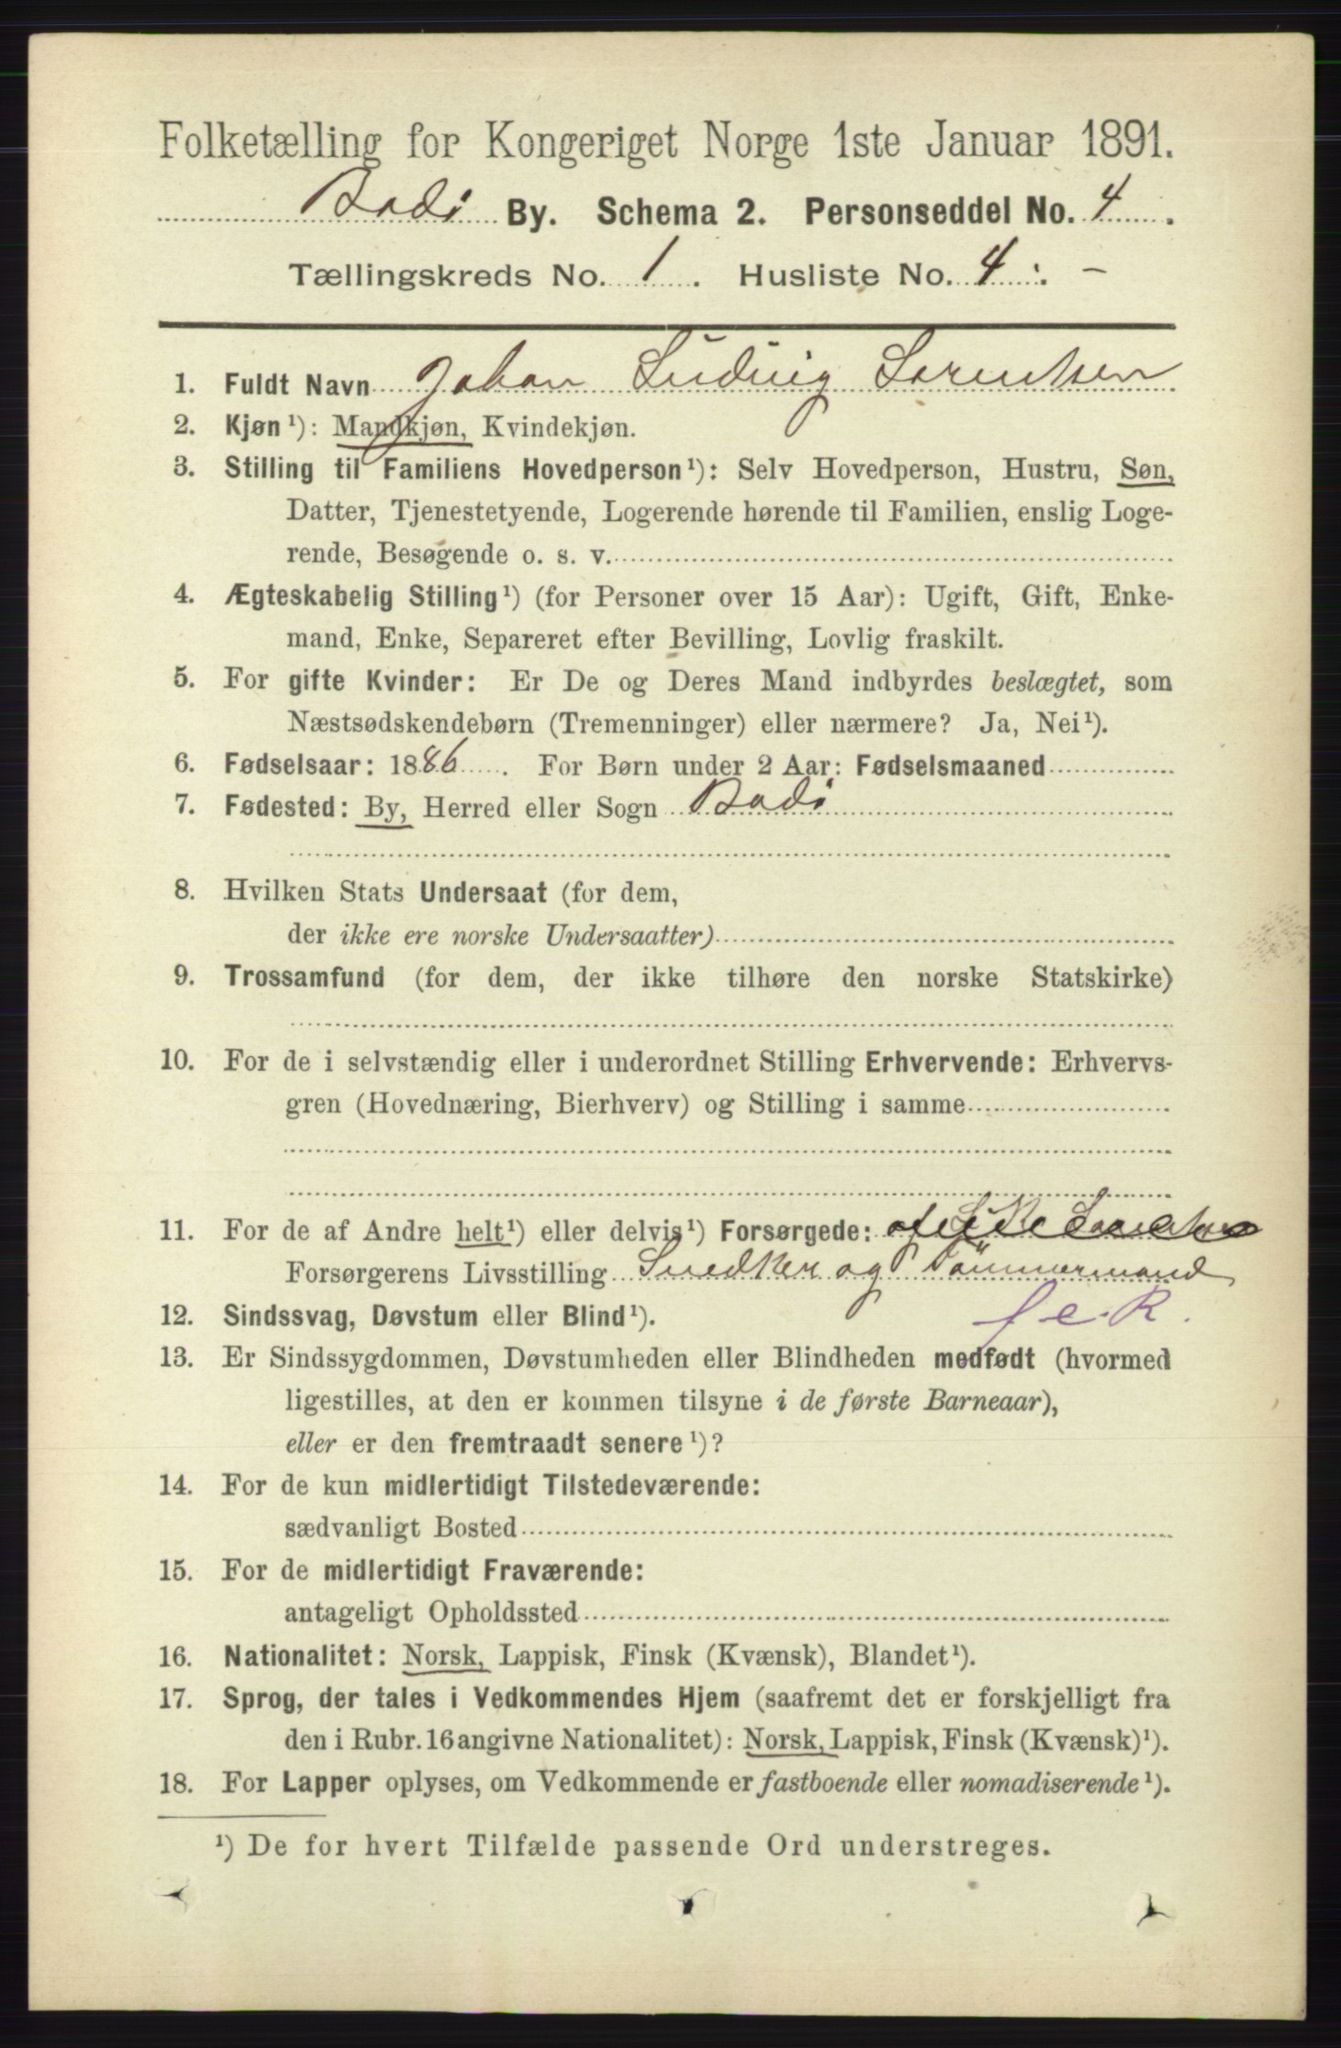 Folketælling for Kongeriget Norge 1ste Januar 1891.
Bodø By. Schema 2. Personseddel No. 4.
Tællingskreds No. 1. Husliste No. 4. -
1. Fuldt Navn Johan Ludvig Sørentsen
2. Kjøn¹): Mandkjøn, Kvindekjøn.
3. Stilling til Familiens Hovedperson¹): Selv Hovedperson, Hustru, Søn,
Datter, Tjenestetyende, Logerende hørende til Familien, enslig Loge-
rende, Besøgende o. s. v.
4. Ægteskabelig Stilling¹) (for Personer over 15 Aar): Ugift, Gift, Enke-
mand, Enke, Separeret efter Bevilling, Lovlig fraskilt.
5. For gifte Kvinder: Er De og Deres Mand indbyrdes beslægtet, som
Næstsødskendebørn (Tremenninger) eller nærmere? Ja, Nei¹).
6. Fødselsaar: 1886. For Børn under 2 Aar: Fødselsmaaned
7. Fødested: By, Herred eller Sogn Bodø
8. Hvilken Stats Undersaat (for dem,
der ikke ere norske Undersaatter)
9. Trossamfund (for dem, der ikke tilhøre den norske Statskirke)
10. For de i selvstændig eller i underordnet Stilling Erhvervende: Erhvervs-
gren (Hovednæring, Bierhverv) og Stilling i samme
11. For de af Andre helt¹) eller delvis¹) Forsørgede: af
Forsørgerens Livsstilling Snedker og Tømmermand
12. Sindssvag, Døvstum eller Blind¹).
13. Er Sindssygdommen, Døvstumheden eller Blindheden medfødt (hvormed
ligestilles, at den er kommen tilsyne i de første Barneaar),
eller er den fremtraadt senere¹)?
14. For de kun midlertidigt Tilstedeværende:
sædvanligt Bosted
15. For de midlertidigt Fraværende:
antageligt Opholdssted
16. Nationalitet: Norsk, Lappisk, Finsk (Kvænsk), Blandet¹).
17. Sprog, der tales i Vedkommendes Hjem (saafremt det er forskjelligt fra
den i Rubr. 16 angivne Nationalitet): Norsk, Lappisk, Finsk (Kvænsk)¹).
18. For Lapper oplyses, om Vedkommende er fastboende eller nomadiserende¹).
¹) De for hvert Tilfælde passende Ord understreges.